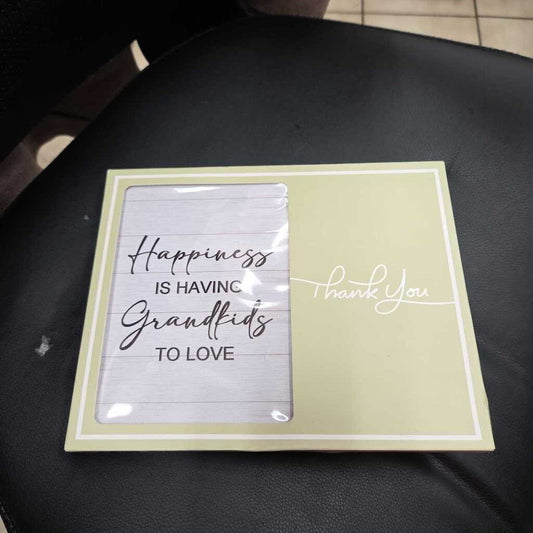 Happiness
IS HAVING
Grandkids
TO LOVE
Thank You